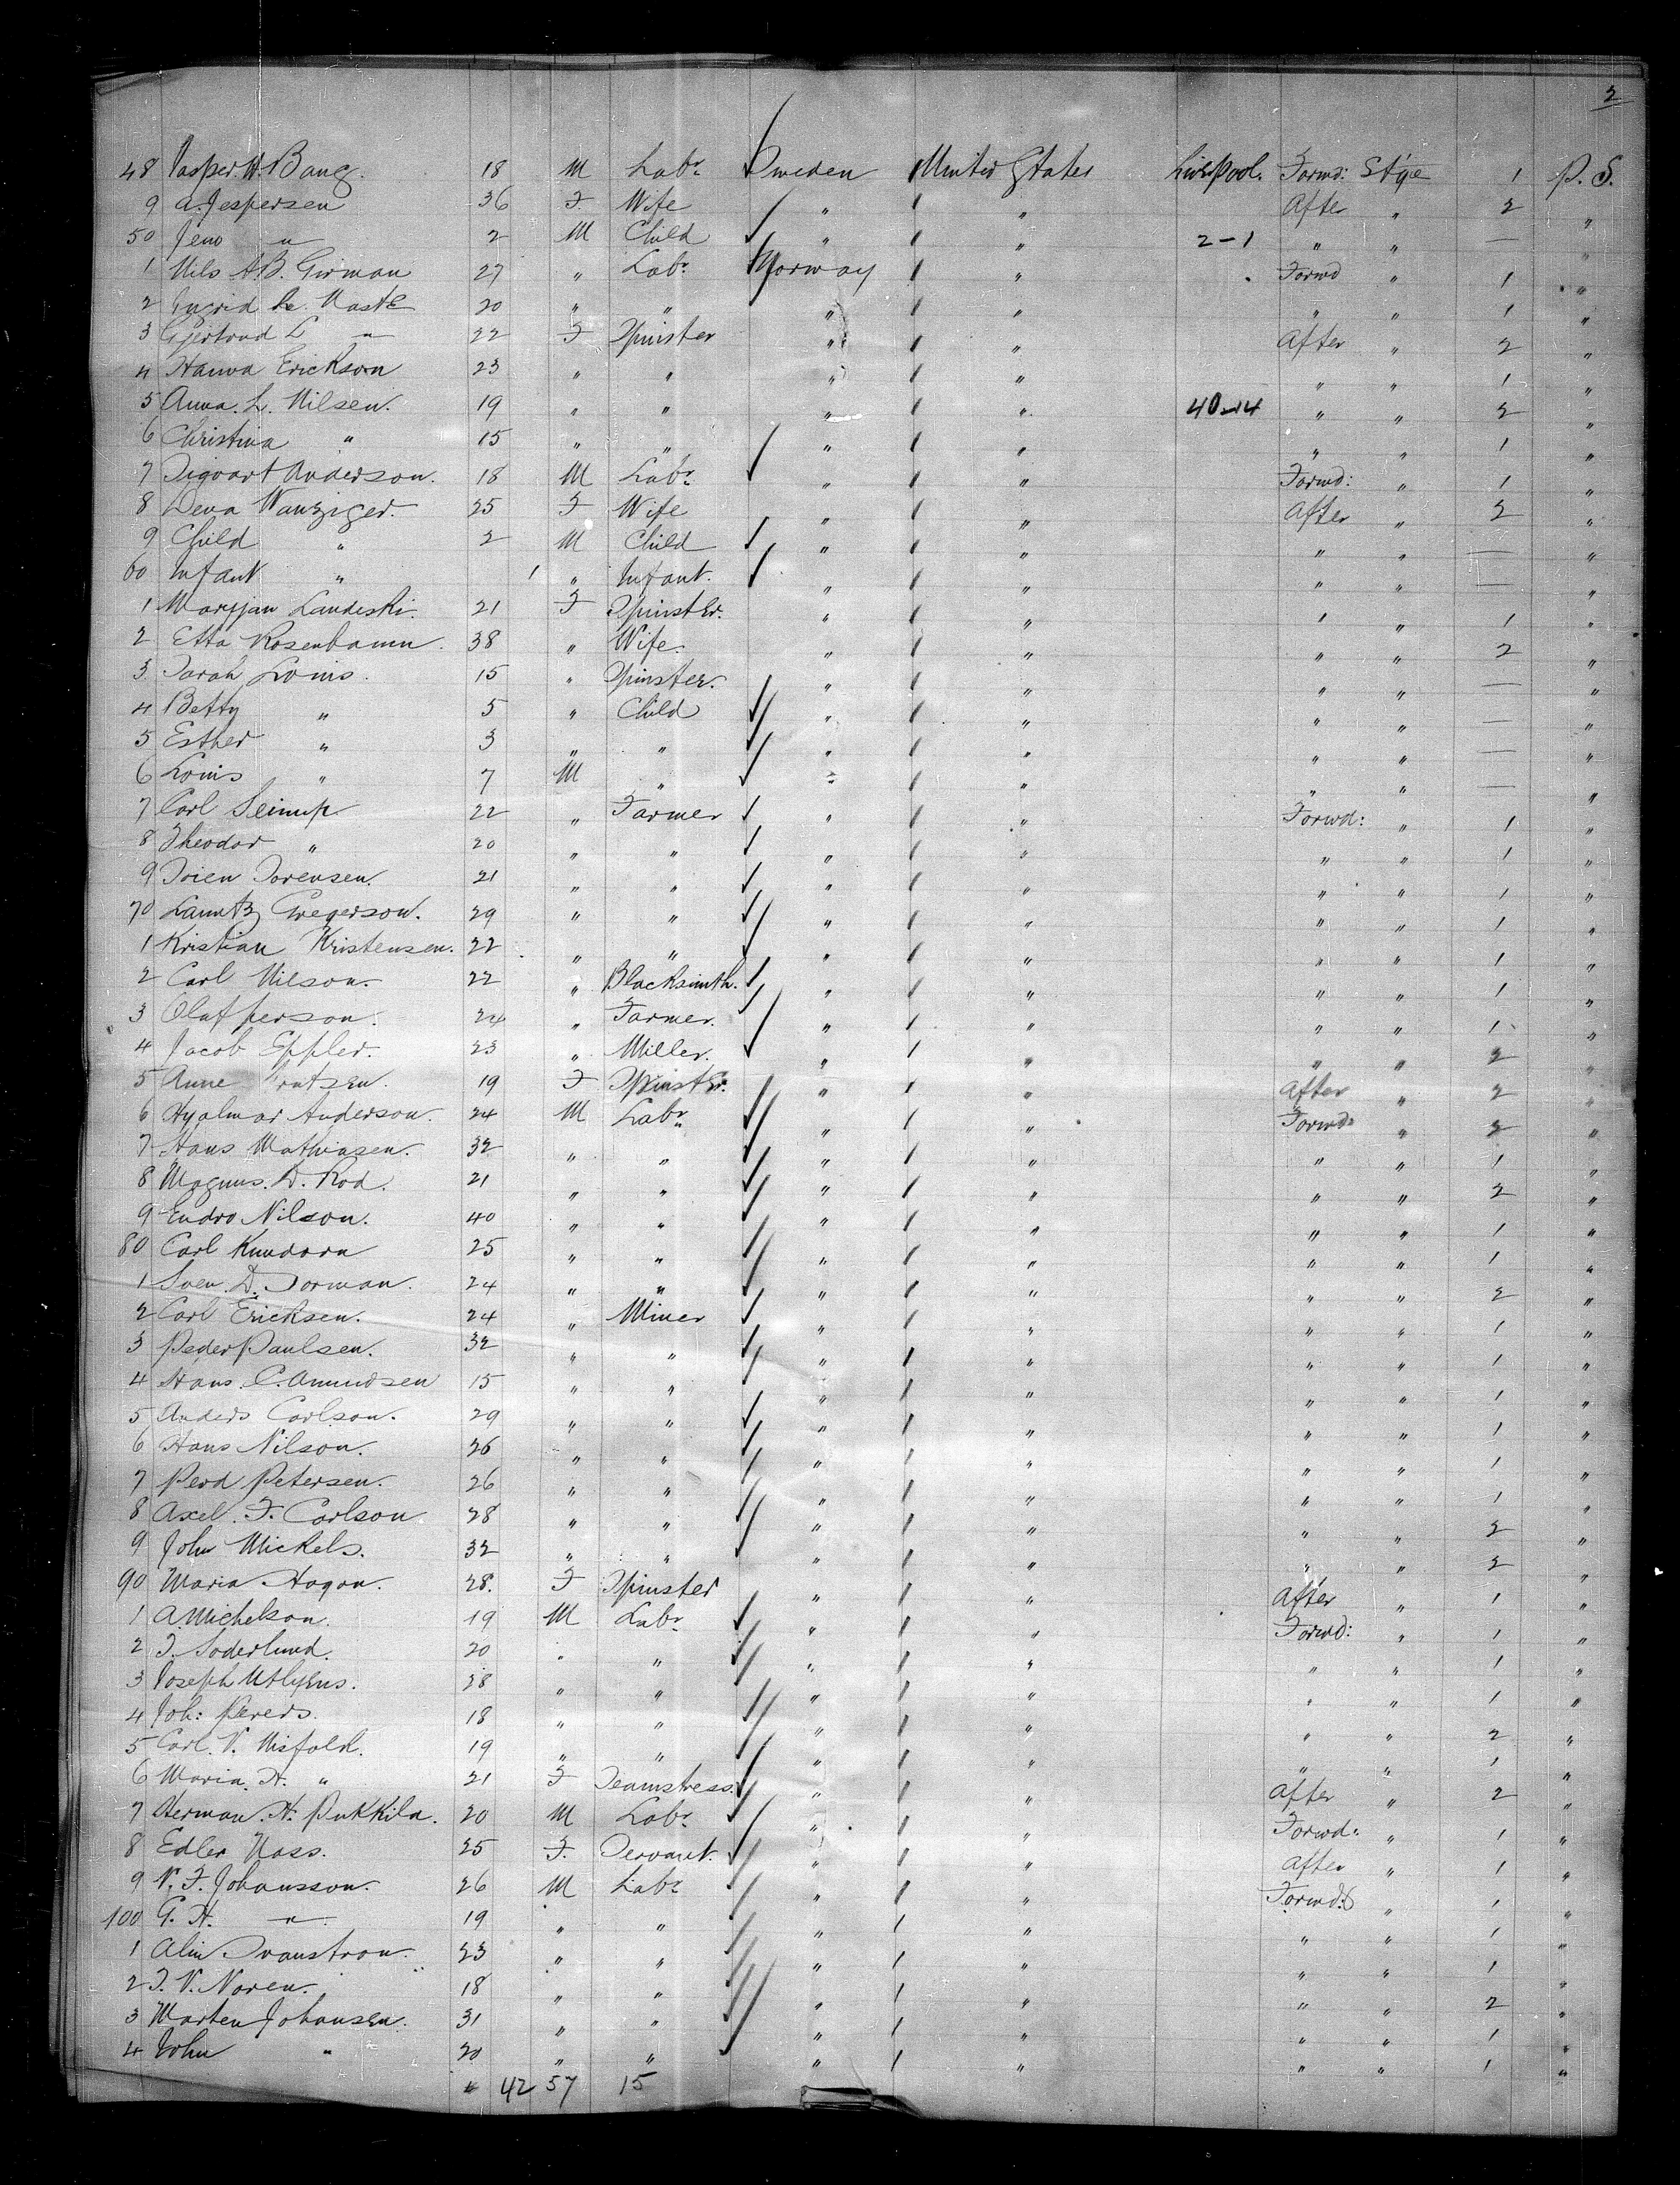 2
48 Jasper W. Bang. 18 M Labr Sweden United States Liverpool. Forwd: St'ge 1 P. S.
9 A. Jespersen 36 F Wife " " After " 2 "
50 Jens " 2 M Child " " 2-1 " " — "
1 Nils A.B. Girman 27 " Labr Norway " Forwd " 1 "
2 Ingrid 20 " " " " " " 1 "
3 Gjertrud L " 22 F Spinster " " After " 2 "
4 Hanna Erickson 23 " " " " " " 1 "
5 Anna. L. Nilsen. 19 " " " " 40-14 " " 2 "
6 Christina " 15 " " " " " " 1 "
7 Sigvart Anderson. 18 M Labr " " Forwd: " 1 "
8 Lena Wanziger. 25 F Wife " " After " 2 "
9 Child " 2 M Child " " " " — "
60 Infant " 1 " Infant. " " " " — "
1 Marrjan Landeski. 21 F Spinster. " " " " 1 "
2 Etta Rosenbaum. 38 " Wife. " " " " 2 "
3 Sarah Louis. 15 " Spinster. " " " " — "
4 Betty " 5 " Child " " " " — "
5 Esther " 3 " " " " " " — "
6 Louis " 7 M " " " " " — "
7 Carl 22 " Farmer " " Forwd: " 1 "
8 Theodor " 20 " " " " " " 1 "
9 Sorensen. 21 " " " " " " 1 "
70 Lauritz Gregerson. 29 " " " " " " 1 "
1 Kristian Kristensen. 22 " " " " " " 1 "
2 Carl Nilson. 22 " Blacksmith. " " " " 1 "
3 Olaf person. 24 " Farmer. " " " " 1 "
4 Jacob Eppler. 23 " Miller. " " " " 2 "
5 Anne 19 F Spinster. " " After " 2 "
6 Hyalmar Anderson. 24 M Labr " " Forwd: " 2 "
7 Hans Mathiasen. 32 " " " " " " 1 "
8 Magnus. D. Rod. 21 " " " " " " 2 "
9 Endro Nilson. 40 " " " " " " 1 "
80 Carl 25 " " " " " " 1 "
1 Sven. D. Dorman. 24 " " " " " " 2 "
2 Carl Ericksen. 24 " Miner " " " " 1 "
3 Peder Paulsen. 32 " " " " " " 1 "
4 Hans. C. Amundsen 15 " " " " " " 1 "
5 Anders Carlson. 29 " " " " " " 1 "
6 Hans Nilson. 26 " " " " " " 1 "
7 Perd Petersen. 26 " " " " " " 1 "
8 Axel. F. Carlson 28 " " " " " " 2 "
9 John Mickels. 32 " " " " " " 2 "
90 Maria Hagan. 28. F Spinster " " After " 1 "
1 A. Michelson. 19 M Labr " " Forwd: " 1 "
2 Soderlund. 20 " " " " " " 1 "
3 Joseph 38 " " " " " " 1 "
4 Joh: Perers. 18 " " " " " " 2 "
5 Carl. V. Misfold. 19 " " " " " " 1 "
6 Maria. H. " 21 F Seamstress. " " After " 2 "
7 Herman. H. Pukkila. 20 M Labr " " Forwd: " 1 "
8 Edler Nass. 25 F. Servant. " " After " 1 "
9 N. F. Johansson. 26 M Labr " " Forwd: " 1 "
100 G. H. " 19 " " " " " " 1 "
1 Alin Svanstron. 23 " " " " " " 1 "
2 N. Noren. 18 " " " " " " 2 "
3 Marten Johansen. 31 " " " " " " 1 "
4 John " 20 " " " " " " 1 "
42 57 15